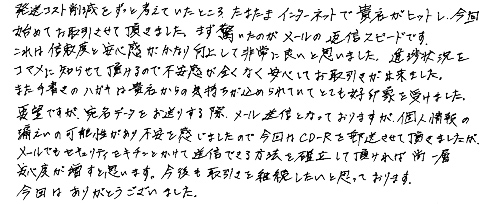 発送コスト削減をずっと考えていたところ、たまたまインターネットで貴名がヒットし、今回
始めてお取引させて頂きました。まず驚いたのがメールの返信スピードです。
これは信頼度と安心感がかなり向上して非常に良いと思いました。進捗状況を
コマメに知らせて頂けるので不安感が全くなく安心してお取引きが出来ました。
また手書きのハガキは貴名からの気持ちが込められていてとても好印象を受けました。
要望ですが、宛名データをお送りする際、メール送信となっておりますが、個人情報の
漏えいの可能性があり不安を感じましたので今回はCD-Rを郵送させて頂きましたが、
メールでもセキュリティをキチッとかけて送信できる方法を確立して頂ければ尚一層
安心度が増すと思います。今後も取引きを継続したいと思っております。
今回はありがとうございました。